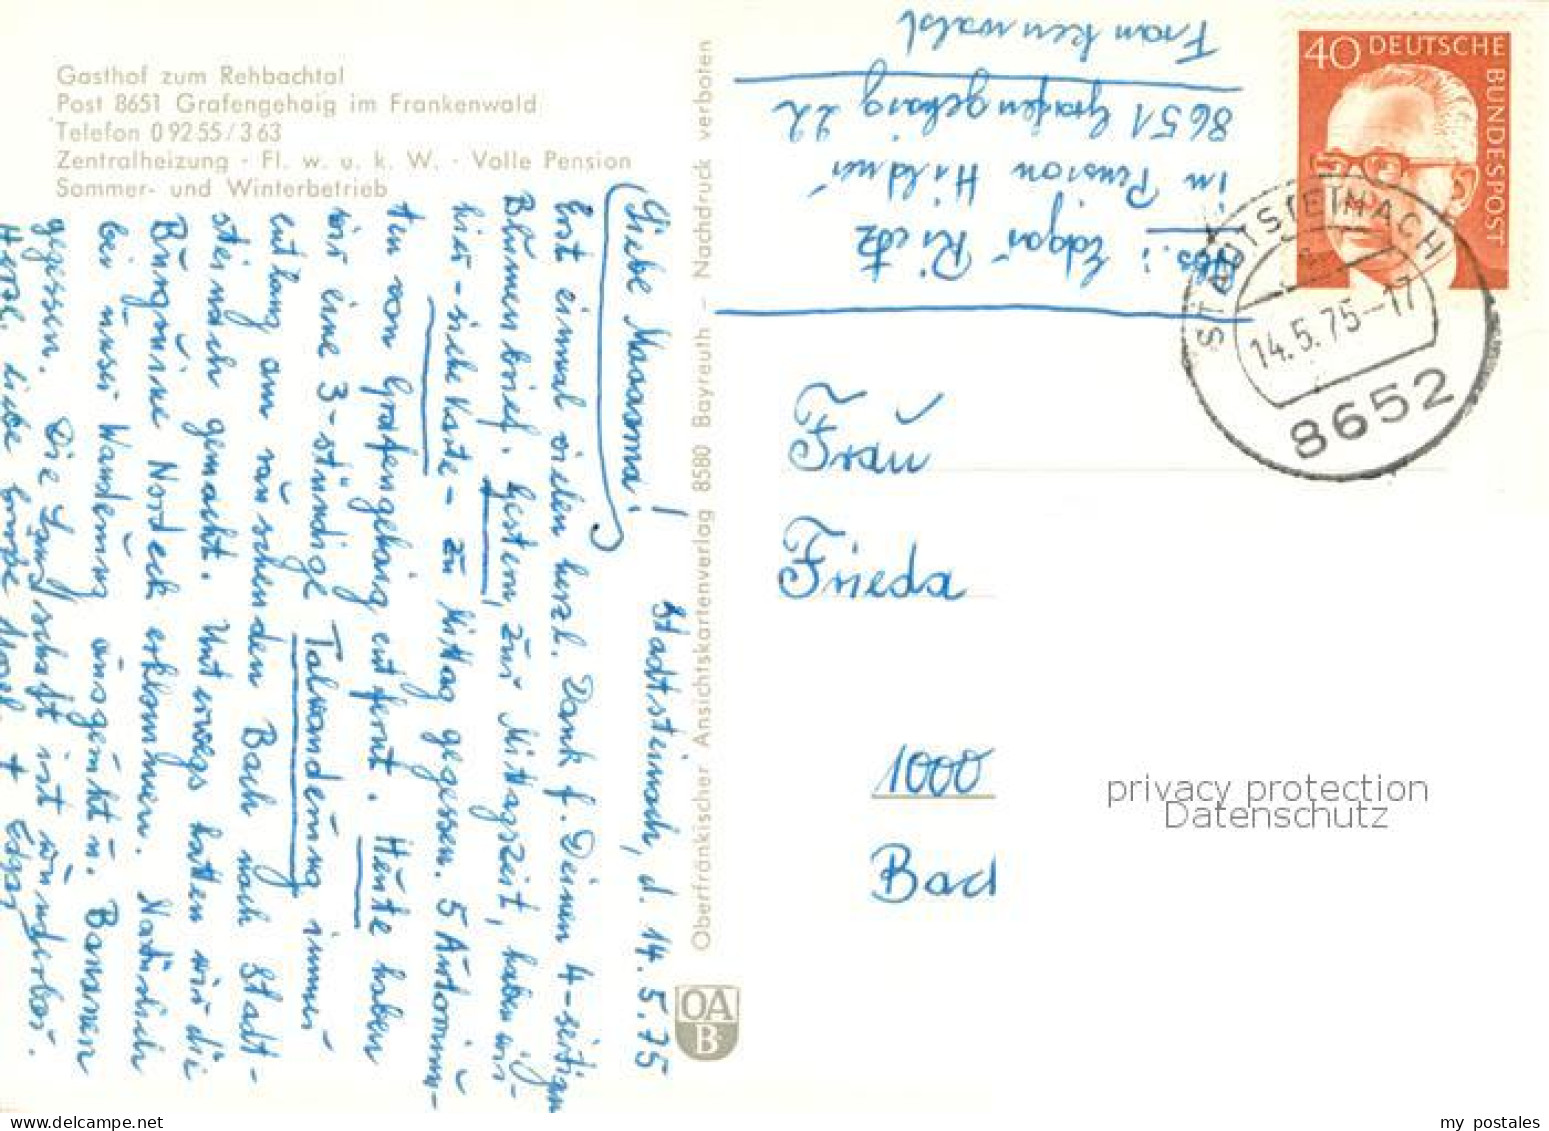 Gasthof zum Rehbachtal
Post 8651 Grafengehaig im Frankenwald
Telefon 0 92 55 / 3 63
Zentralheizung · Fl. w. u. k. W. · Volle Pension
Sommer- und Winterbetrieb
Stadtsteinach, d. 14.5.75
Liebe Maaama!
Erst einmal vielen herzl. Dank f. Deinen 4-seitigen
Blumenbrief. Gestern, zur Mittagszeit, haben wir
hier - siehe Karte - zu Mittag gegessen. 5 Autominu-
ten von Grafengehaig entfernt. Heute haben
wir eine 3-stündige Talwanderung immer
entlang am rauschenden Bach nach Stadt-
steinach gemacht. Unterwegs hatten wir die
Burgruine Nordeck erklommen. Natürlich
bei unser Wanderung ausgeruht u. Bananen
gegessen. Die Landschaft ist wunderbar.
Herzl. liebe Grüße + Edgar
Oberfränkischer Ansichtskartenverlag 8580 Bayreuth – Nachdruck verboten
OA
B
Abs.: Edgar Rietz
in Pension Hildner
8651 Grafengehaig 22
Frankenwald
40 DEUTSCHE
BUNDESPOST
STADTSTEINACH
14.5.75-17
8652
Frau
Frieda
1000
Bad
privacy protection
Datenschutz
my postales